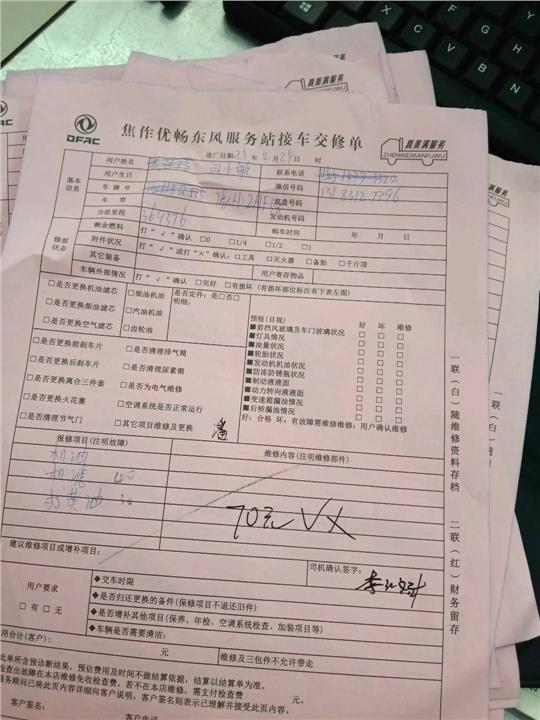 真美满服务
DFAC
焦作优畅东风服务站接车交修单
真美满服务
ZHENMEIMANFUWU
进厂日期:25年 月24日 时
基本信息
用户姓名
联系电话
用户生日
微信号码
车牌号
底盘号码
车型
发动机号码
当前里程 369376
购车时间 年 月 日
修前状态
剩余燃料 打“√”确认 □0 □1/4 □1/2 □1
附件状况 打“√”或打“×”确认:□工具 □灭火器 □备胎 □千斤顶
其它装备
用户寄存物品
车辆外部情况 打“√”确认 □完好 □有损坏(有损坏部位标注有下表左图)
□是否更换机油滤芯
□是否更换柴油滤芯
□是否更换空气滤芯
□柴油机油
□汽油机油
□齿轮油
是否定件:是□否□
明细:
□是否更换前刹车片
□是否更换后刹车片
□是否更换离合三件套
□是否更换火花塞
□是否清理节气门
□是否清理排气筒
□是否清理尿素箱
□是否为电气维修
□空调系统是否正常运行
□其它项目维修及更换
预检(目视) 好 坏 维修
■前挡风玻璃及车门玻璃状况 □ □ □
■灯具情况 □ □ □
■油量状况 □ □ □
■轮胎状况 □ □ □
■发动机机油状况 □ □ □
■防冻防锈瓶状况 □ □ □
■制动液液面 □ □ □
■动力转向液液面 □ □ □
■变速箱漏油情况 □ □ □
■后桥漏油情况 □ □ □
好:合格 坏:有故障需维修维修:用户确认维修
报修项目(注明故障)
维修内容(注明维修部件)
机油
机滤 40
打黄油 30
70元VX
建议维修项目或增补项目:
司机确认签字:
用户要求
□有□无
◆交车时限
◆是否归还更换的备件(保修项目不退还旧件)
◆是否增补其他项目(保养、年检、空调系统检查、加装项目等)
◆车辆是否需要清洁:
用合计(客户): 元
维修及三包件不允许带走
此单所含预诊断结果,预估费用及时间不做结算依据,结算以结算单为准。
检查出故障在本店维修免收检查费,若不在本店维修,需支付检查费 元。
服务顾问已将此页内容详细向客户说明,客户签名则表示已理解并接受此页内容。
客户签名:
客户电话
一联(白)随维修资料存档
二联(红)财务留存